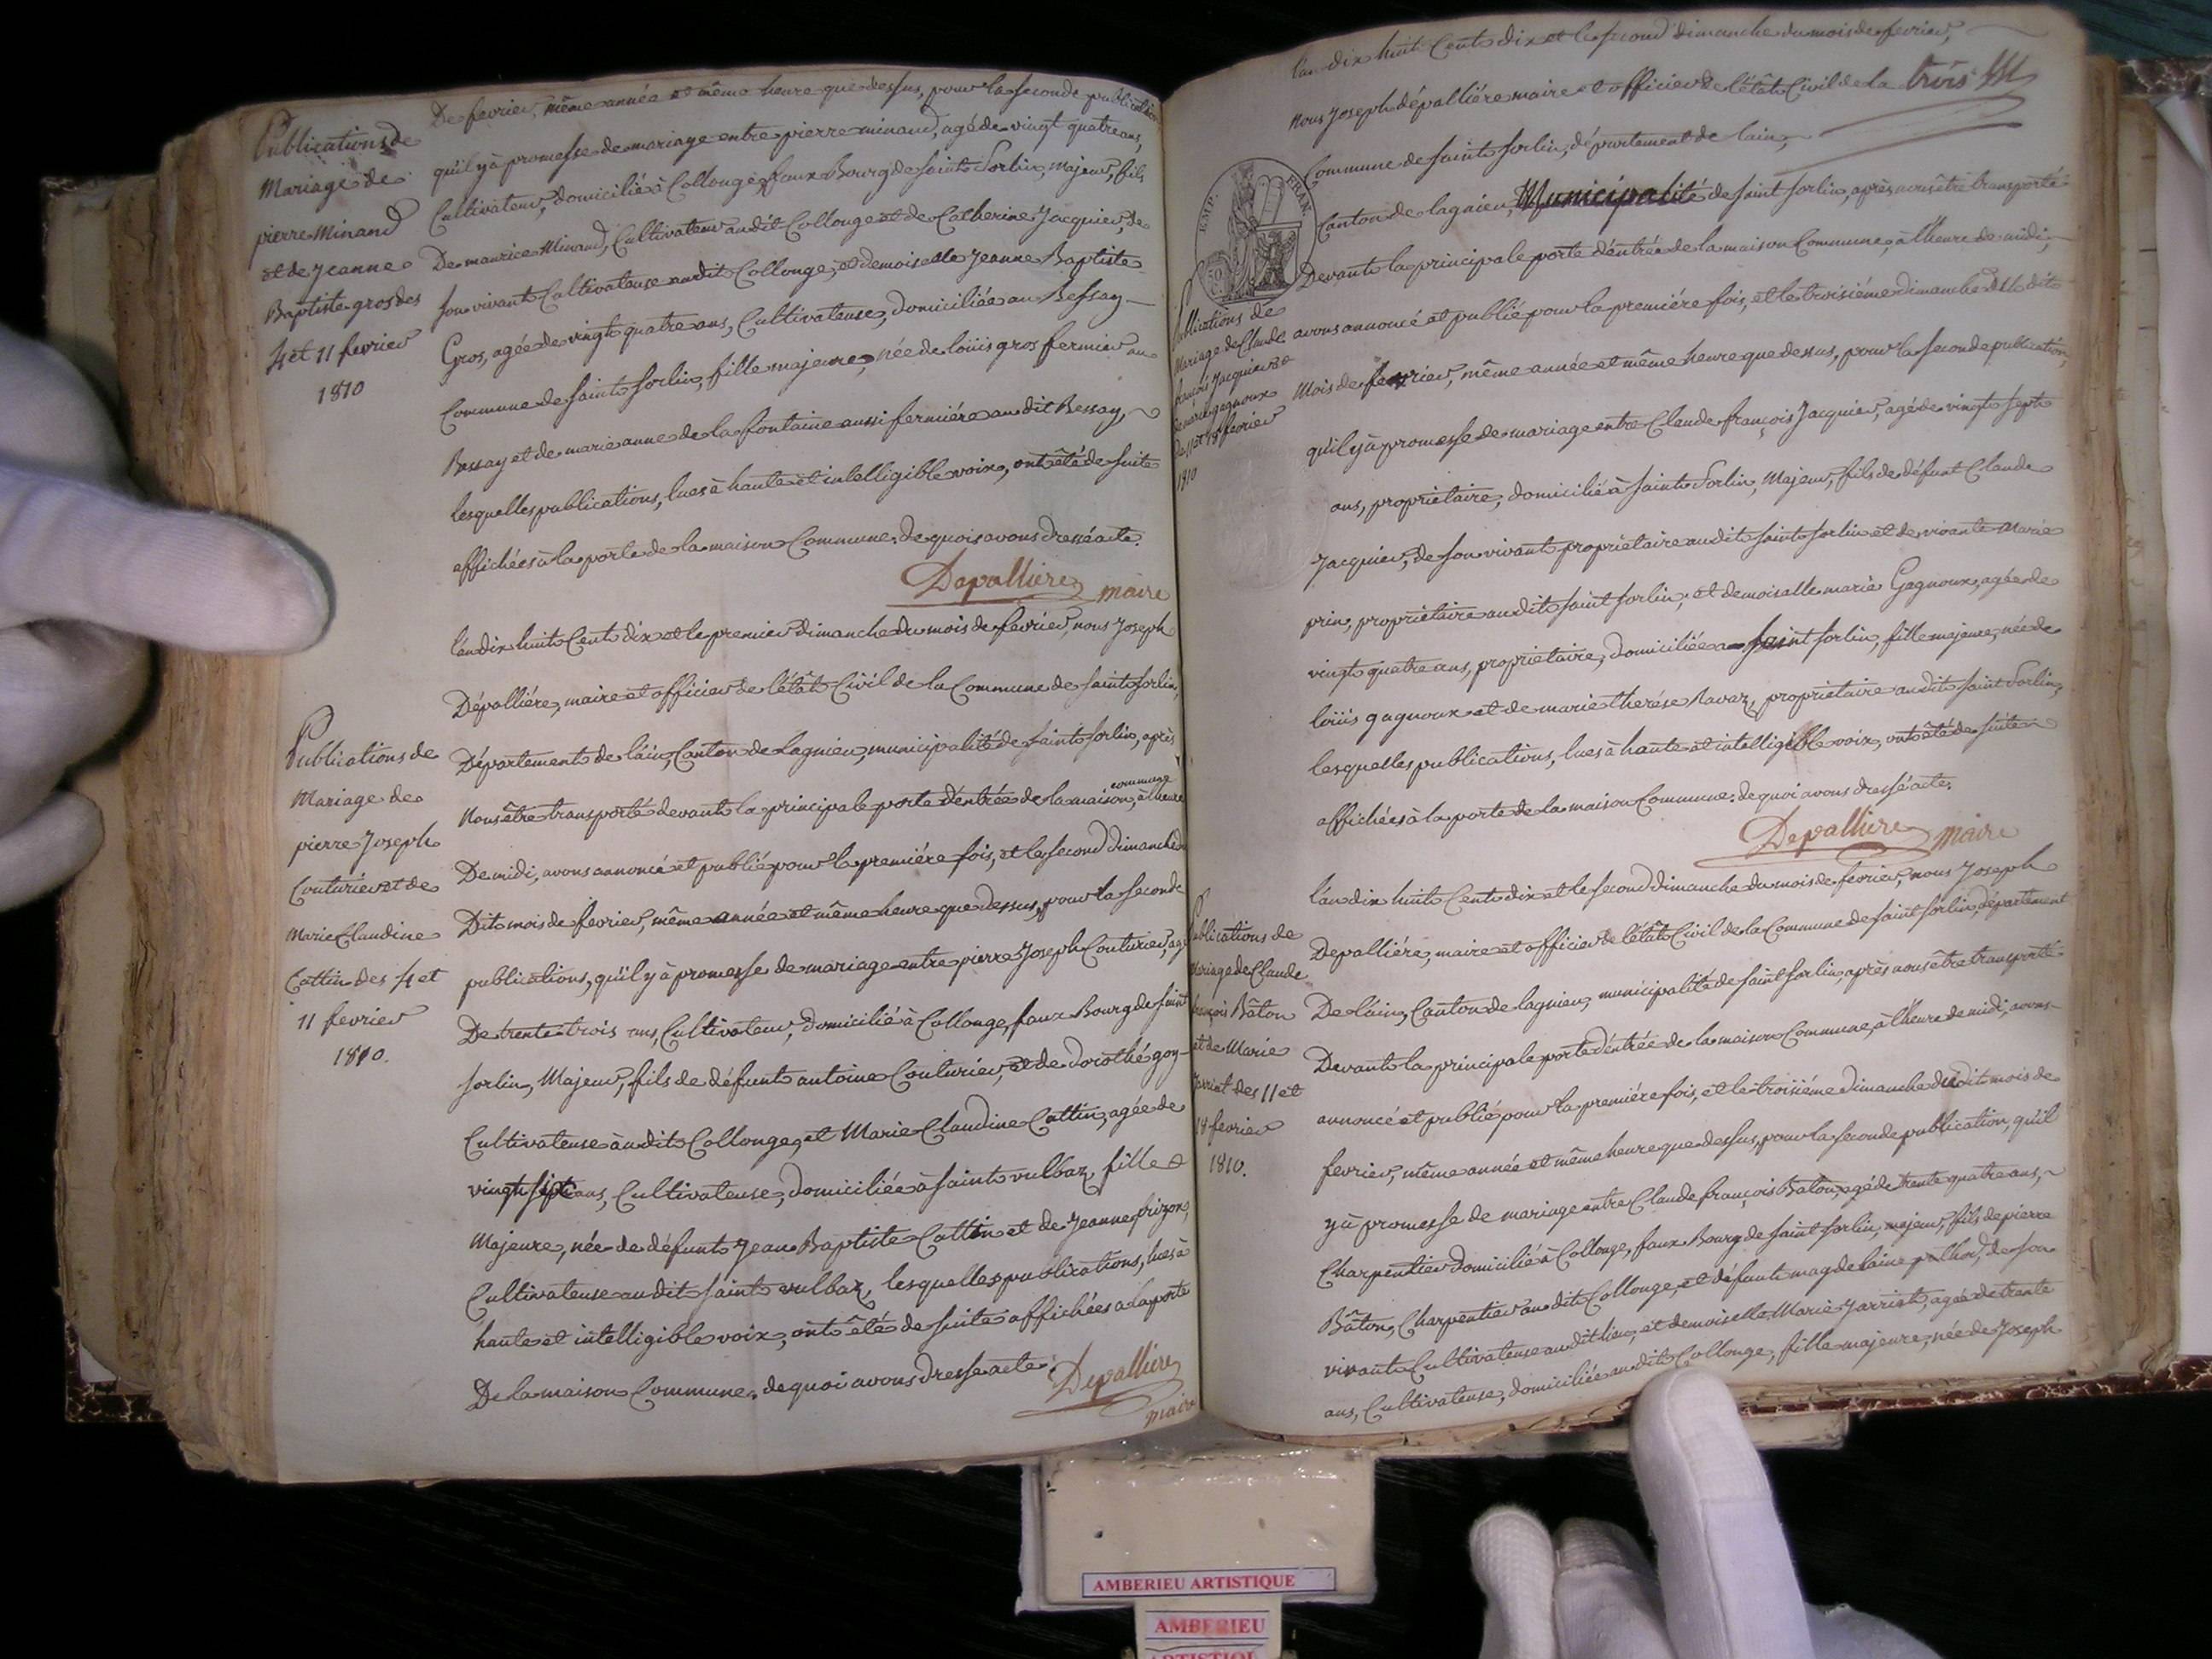 Publications de
Mariage de
pierre Minand
et de Jeanne
Baptiste gros des
4 et 11 fevrier
1810
De fevrier, même année et même heure que dessus, pour la seconde publication
qu'il y à promesse de mariage entre pierre minand, agé de vingt quatre ans,
Cultivateur, domicilié à Collonge, faux Bourg de saint Sorlin, majeur, fils
De maurice Minand, Cultivateur audit Collonge et de Catherine Jacquier, de
son vivant Cultivateuse audit Collonge, et demoiselle Jeanne Baptiste
Gros, agée de vingt quatre ans, Cultivateuse, domiciliée au Bessay
Commune de saint sorlin, fille majeure, née de loüis gros fermier au
Bessay et de marie anne de la fontaine aussi fermiére audit Bessay,
lesquelles publications, lues à haute et intelligible voix, ont été de suite
affichées à la porte de la maison Commune, de quoi avons dressé acte.
Depalliere maire
Publications de
Mariage de
pierre Joseph
Couturier et de
Marie Claudine
Cattin des 4 et
11 fevrier
1810.
l'an dix huit Cent dix et le premier dimanche du mois de fevrier, nous Joseph
Dépalliére, maire et officier de l'état Civil de la Commune de saint sorlin,
Département de l'ain, Canton de Lagnieu, municipalité de saint sorlin, après
Nous être transporté devant la principale porte d'entrée de la maison commune, à l'heure
De midi, avons annoncé et publié pour la premiére fois, et le second dimanche du
Dit mois de fevrier, même année et même heure que dessus, pour la seconde
publications, qu'il y à promesse de mariage entre pierre Joseph Couturier, agé
De trente trois ans, Cultivateur, domicilié à Collonge, faux Bourg de saint
sorlin, Majeur, fils de défunt antoine Couturier, et de dorothé goy
Cultivateuse audit Collonge, et Marie Claudine Cattin, agée de
vingt sept ans, Cultivateuse, domiciliée à saint vulbaz, fille
Majeure, née de défunt Jean Baptiste Cattin et de Jeanne frizon,
Cultivateuse audit saint vulbaz, lesquelles publications, lues à
haute et intelligible voix, ont été de suite affichées à la porte
De la maison Commune, de quoi avons dressé acte.
Depalliere
maire
l'an dix huit Cent dix et le second dimanche du mois de fevrier,
nous Joseph dépalliére maire et officier de l'état Civil de la trois
Commune de saint Sorlin, département de l'ain,
Canton de lagnieu, Municipalité de saint sorlin, après nous être transporté
EMP. FRAN.
50
Publications de
Mariage de Claude
françois Jacquier et
de marie gagnoux
Des 11 et 18 fevrier
1810
Devant la principale porte d'entrée de la maison Commune, à l'heure de midi,
avons annoncé et publié pour la premiére fois, et le troisiéme dimanche dudit
Mois de fevrier, même année et même heure que dessus, pour la seconde publication,
qu'il y à promesse de mariage entre Claude françois Jacquier, agé de vingt sept
ans, propriétaire, domicilié à saint Sorlin, Majeur, fils de défunt Claude
Jacquier, de son vivant propriétaire audit saint sorlin et de vivante Marie
prin, propriétaire audit saint sorlin, et demoiselle marie Gagnoux, agée de
vingt quatre ans, propriétaire, domiciliée a saint sorlin, fille majeure, née de
loüis gagnoux et de marie therése Ravaz, propriétaire audit saint Sorlin,
lesquelles publications, lues à haute et intelligible voix, ont été de suite
affichées à la porte de la maison Commune. de quoi avons dressé acte.
Depalliere maire
Publications de
Mariage de Claude
françois Bâton
et de Marie
Jarrint des 11 et
18 fevrier
1810.
l'an dix huit Cent dix et le second dimanche du mois de fevrier, nous Joseph
Depalliére, maire et officier de l'état Civil de la Commune de saint sorlin, département
De l'ain, Canton de lagnieu, municipalité de saint sorlin, après nous être transporté
Devant la principale porte d'entrée de la maison Commune, à l'heure de midi, avons
annoncé et publié pour la premiére fois, et le troisiéme dimanche dudit mois de
fevrier, même année et même heure que dessus, pour la seconde publication, qu'il
y à promesse de mariage entre Claude françois Bâton, agé de trente quatre ans,
Charpentier domicilié à Collonge, faux Bourg de saint sorlin, majeur, fils de pierre
Bâton, Charpentier audit Collonge, et défunte magdelaine de son
vivant Cultivateuse audit lieu, et demoiselle Marie Jarrint, agée de trente
ans, Cultivateuse, domiciliée audit Collonge, fille majeure, née de Joseph
AMBERIEU ARTISTIQUE
AMBERIEU
ARTISTIQUE